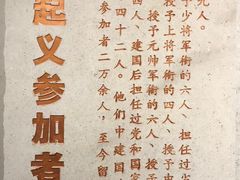 起义参加者
参加者二万余人，至今留
四十二人。他们中建国
四人、建国后担任过党和国家
授予元帅军衔的六人、授予
授予上将军衔的四人、授予中
予少将军衔的六人、担任过少
九人。